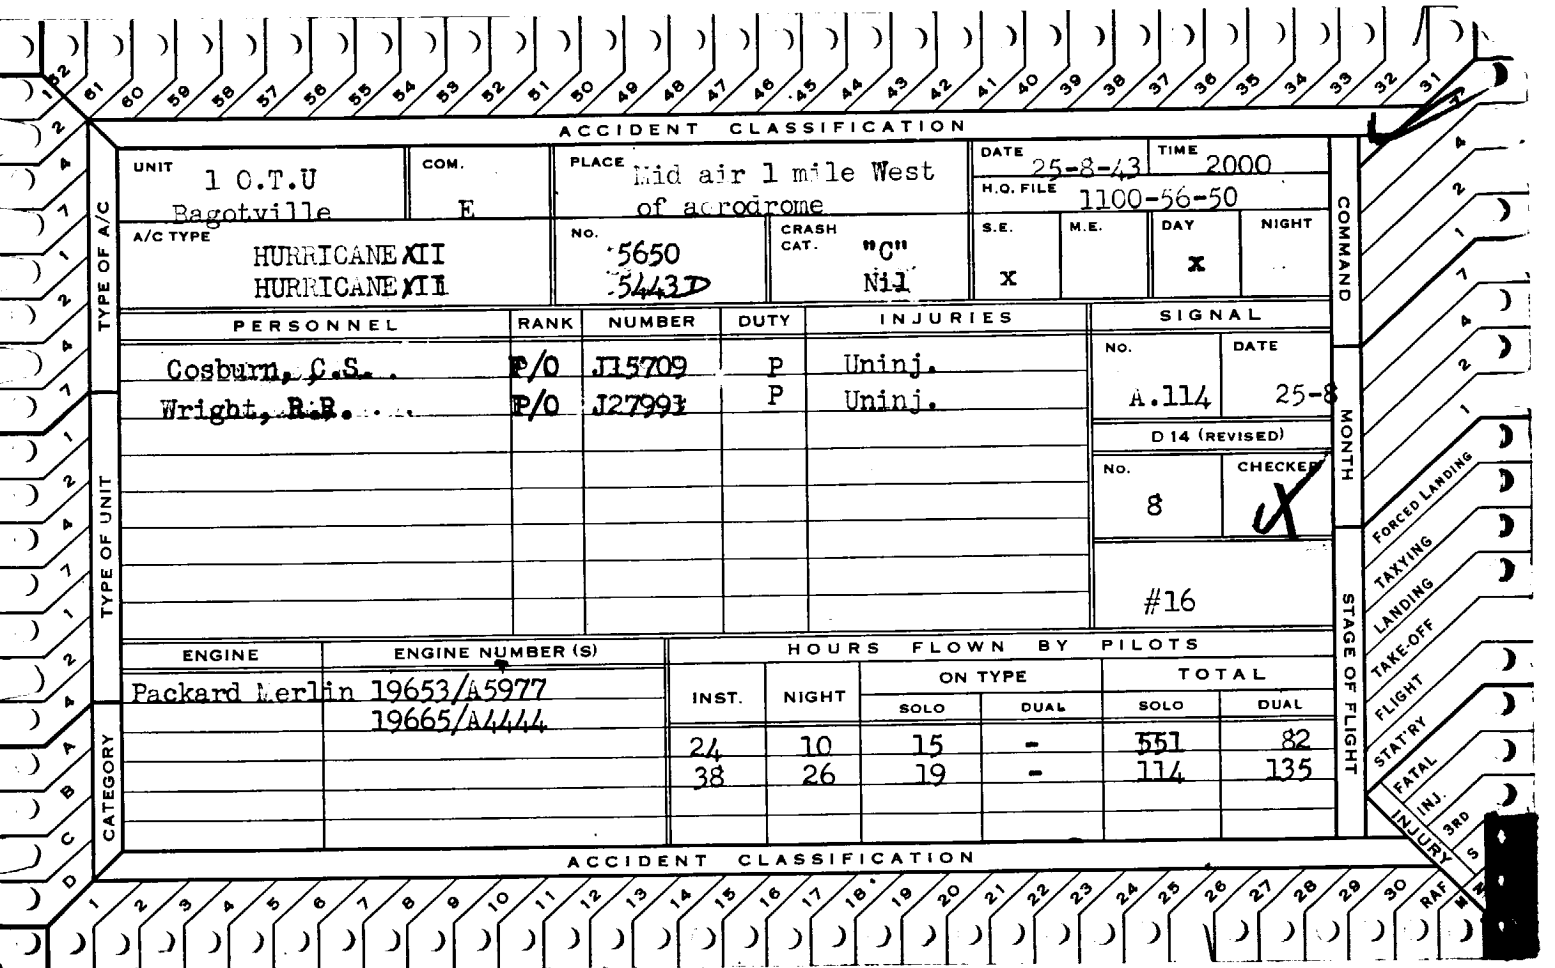 62 61 60 59 58 57 56 55 54 53 52 51 50 49 48 47 46 45 44 43 42 41 40 39 38 37 36 35 34 33 32 31
ACCIDENT CLASSIFICATION
UNIT 1 O.T.U Bagotville
COM. E
PLACE Mid air 1 mile West
of aerodrome
DATE 25-8-43 TIME 2000
H.Q. FILE 1100-56-50
A/C TYPE
HURRICANE XII
HURRICANE XII
No.
5650
5443D
CRASH CAT.
"C"
Nil
S.E. M.E. DAY NIGHT
x x
PERSONNEL RANK NUMBER DUTY INJURIES SIGNAL
Cosburn, C.S. P/O J15709 P Uninj.
Wright, R.R. P/O J27991 P Uninj.
No. DATE
A.114 25-8
D 14 (REVISED)
No. CHECKED
8
#16
ENGINE ENGINE NUMBER (S)
Packard Merlin 19653/A5977
19665/A4444
HOURS FLOWN BY PILOTS
INST. NIGHT ON TYPE TOTAL
SOLO DUAL SOLO DUAL
24 10 15 - 551 82
38 26 19 - 114 135
ACCIDENT CLASSIFICATION
1 2 3 4 5 6 7 8 9 10 11 12 13 14 15 16 17 18 19 20 21 22 23 24 25 26 27 28 29 30 RAF
TYPE OF A/C
TYPE OF UNIT
CATEGORY
1 2 4 7 1 2 4 7 1 2 4 7 1 2 4 A B C D
COMMAND
MONTH
STAGE OF FLIGHT
4 2 1 7 4 2 1
FORCED LANDING
TAXYING
LANDING
TAKE-OFF
FLIGHT
STAT'RY
FATAL
INJ.
3RD
S
INJURY